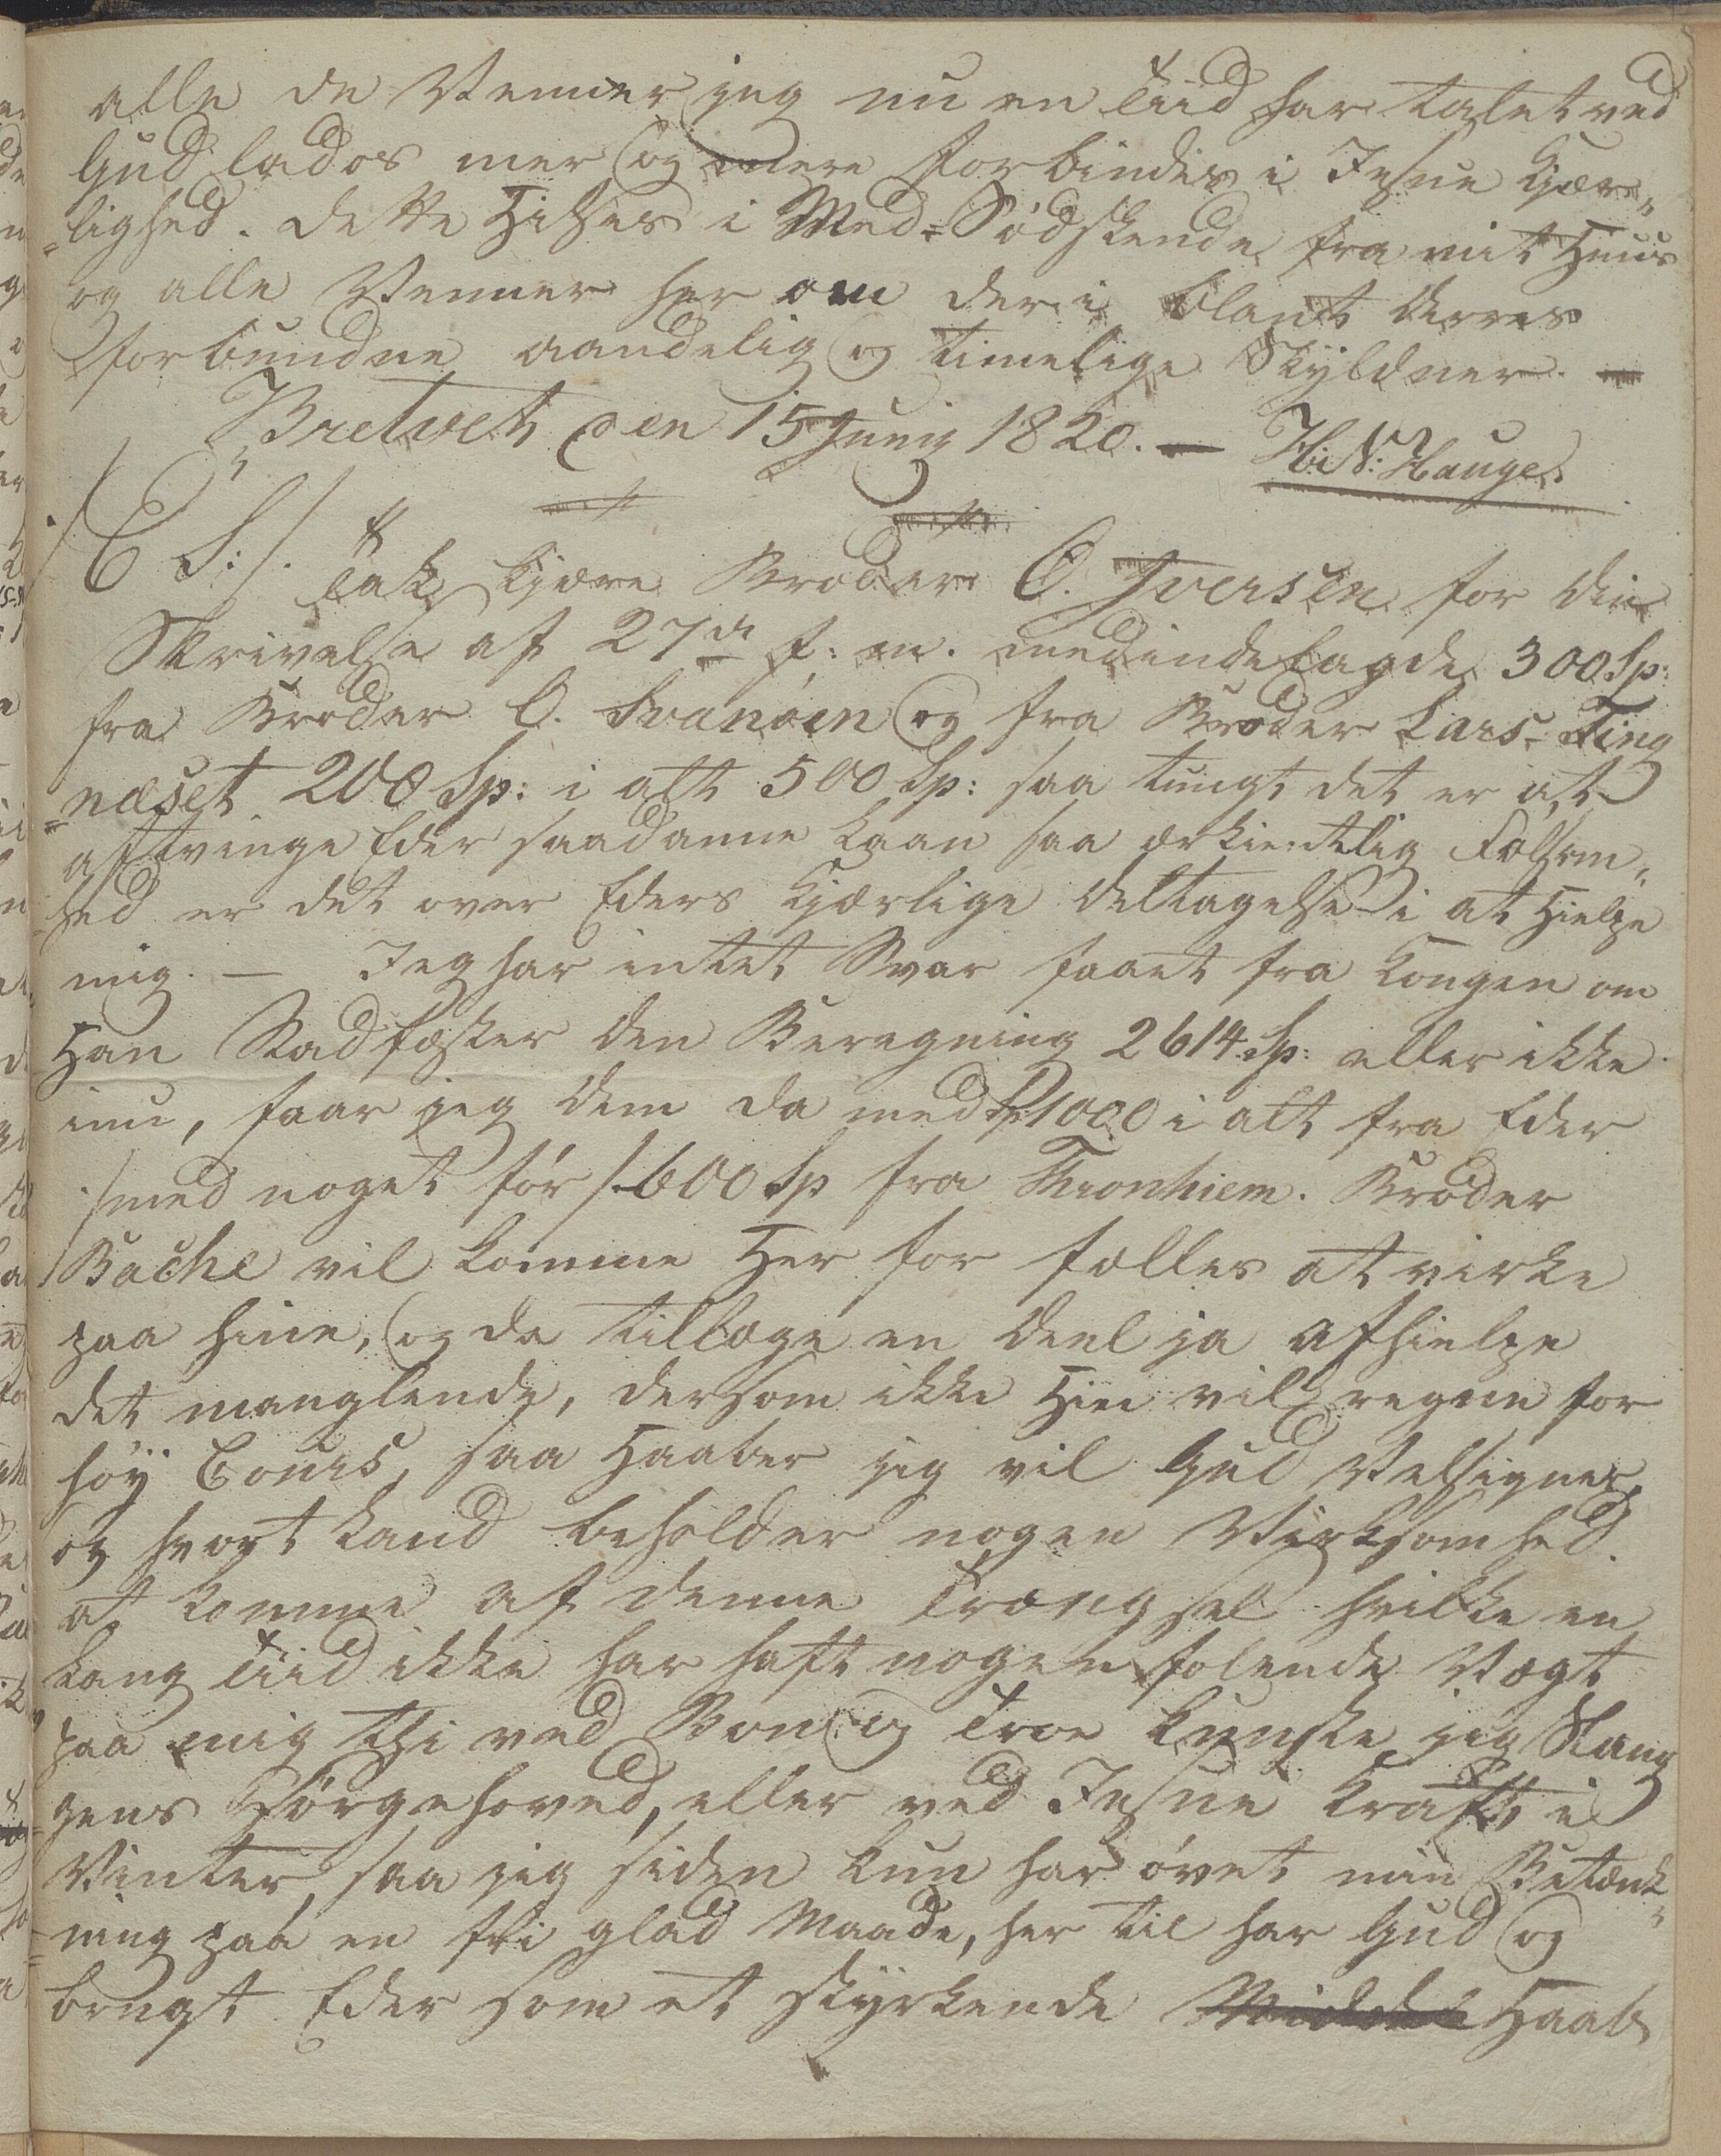 alle de Venner jeg nu en Tiid har talet ved
Gud lad os mer og mere forbindes i Jesue Kjær„
=lighed. dette Hilses i Med=Södskende fra mit Huus
og alle Venner her om der i blant Deres
forbundne aandelig og timelige Skyldner. —
Bretvet den 15 Junij 1820. — H: N: Hauge.
/: E S: /. Tak kjære Broder O. Iversen for din
Skrivelse af 27de f: m. med indelagde 300 Sp:
fra Broder O. Svanöen og fra Broder Lars Ting
=næset 200 Sp: i alt 500 Sp: saa tungt det er at
aftvinge Eder saadanne Laan saa erkientlig Fölsom„
=hed er det over Eders Kjærlige deltagelse i at Hielpe
mig. — Jeg har intet Svar faaet fra Kongen om
Han Stadfæster den Beregning 2614 Sp: eller ikke
inu, faar jeg dem da med Sp 1000 i alt fra Eder
/med noget för/ 600 Sp fra Thronhiem. Broder
Bache vil komme Her for fælles at virke
paa hine, og da tillæge en deel ja afhielpe
det manglende, dersom ikke Hine vil regne for
höy Cours, saa Haaber jeg vil Gud Velsigner,
og hvort Land beholder nogen Virksomhed.
at komme af denne Trængsel hvilke en
lang Tiid ikke har haft nogen folende Vægt
paa mig thi ved Bön og Troe knuste jeg Slang
=gens Sörgehoved, eller ved Jesue Kraft i
Vinter, saa jeg siden kun har övet min Betænk„
=ning paa en fri glad Maade, her til har Gud og
brugt Eder som et styrkende Middel Haab